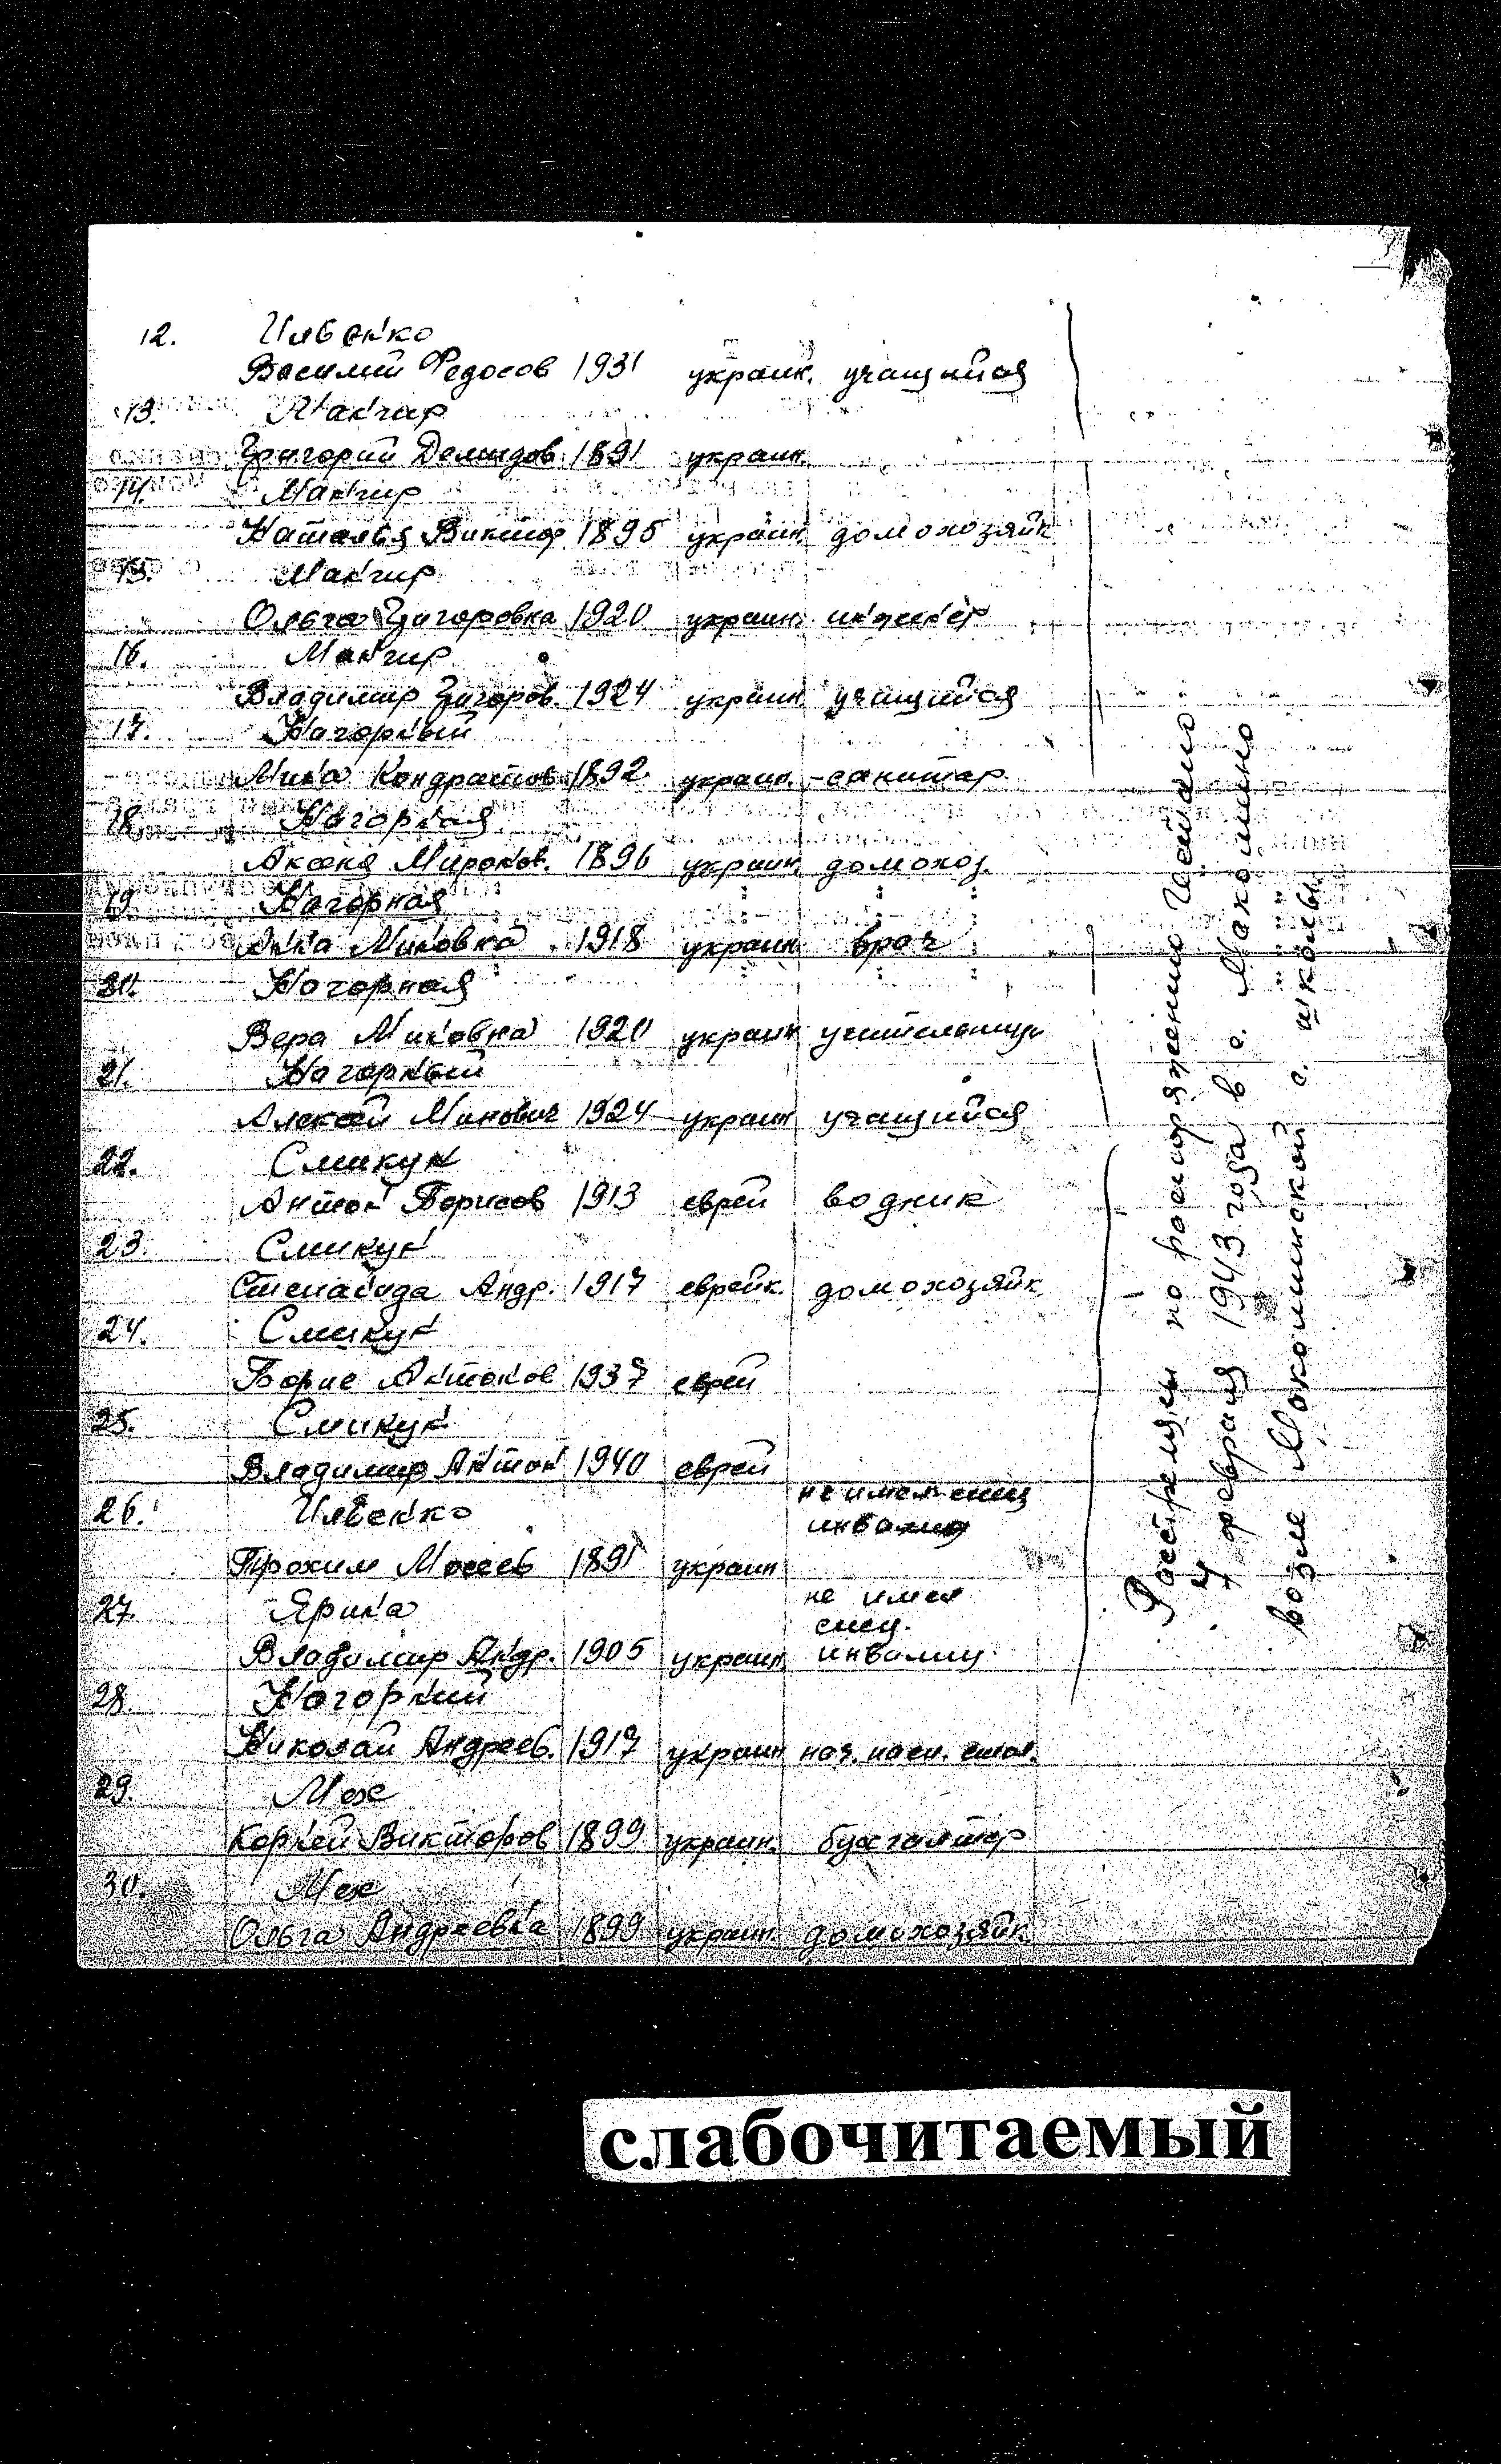 12. Ильенко
Василий Федосов 1931 украин. учащийся
13. Мангир
Григорий Демидов 1891 украин.
14. Мангир
Наталья Виктор. 1895 украин. домохозяйк
15. Мангир
Ольга Григоровна 1920 украин. инженер
16. Мангир
Владимир Григоров. 1924 украин. учащийся
17. Нагорный
Мина Кондратов. 1892 украин. санитар
18. Нагорная
Аксеня Миронов. 1896 украин. домохоз.
19. Нагорная
Анна Миновна 1918 украин. врач
20. Нагорная
Вера Миновна 1920 украин учительница
21. Нагорный
Алексей Минович 1924 украин учащийся
22. Смикун
Антон Борисов 1913 еврей водник
23. Смикун
Степанида Андр. 1917 еврейк. домохозяйк.
24. Смикун
Борис Антонов 1937 еврей
25. Смикун
Владимир Антон 1940 еврей
26. Ильенко
не имел спец
инвалид
Трохим Моисеев 1891 украин
27. Ярина
не имел
спец.
Владимир Андр. 1905 украин. инвалид
28. Нагорний
Николай Андреев. 1917 украин нач.
29. Мох
Корней Викторов 1899 украин. бухгалтер
30. Мох
Ольга Андреевна 1899 украин. домохозяйк.
Расстреляны по распоряжению Гестапо
7 февраля 1943 года в с. Макошино
возле Макошинской с. школы
слабочитаемый